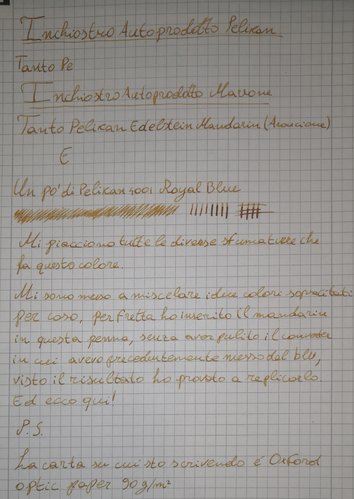 Inchiostro Autoprodotto Pelikan
Tanto Pe
Inchiostro Autoprodotto Marrone
Tanto Pelican Edelstein Mandarin (Arancione)
E
Un po' di Pelican 4001 Royal Blue
Mi piacciono tutte le diverse sfumature che
fa questo colore.
Mi sono messo a miscelare i due colori sopracitati
per caso, per fretta ho inserito il mandarin
in questa penna, senza aver pulito il converter
in cui avevo precedentemente messo del blu,
visto il risultato ho provato a replicarlo.
Ed ecco qui!
P.S.
La carta su cui sto scrivendo é Oxford
optic paper 90g/m²